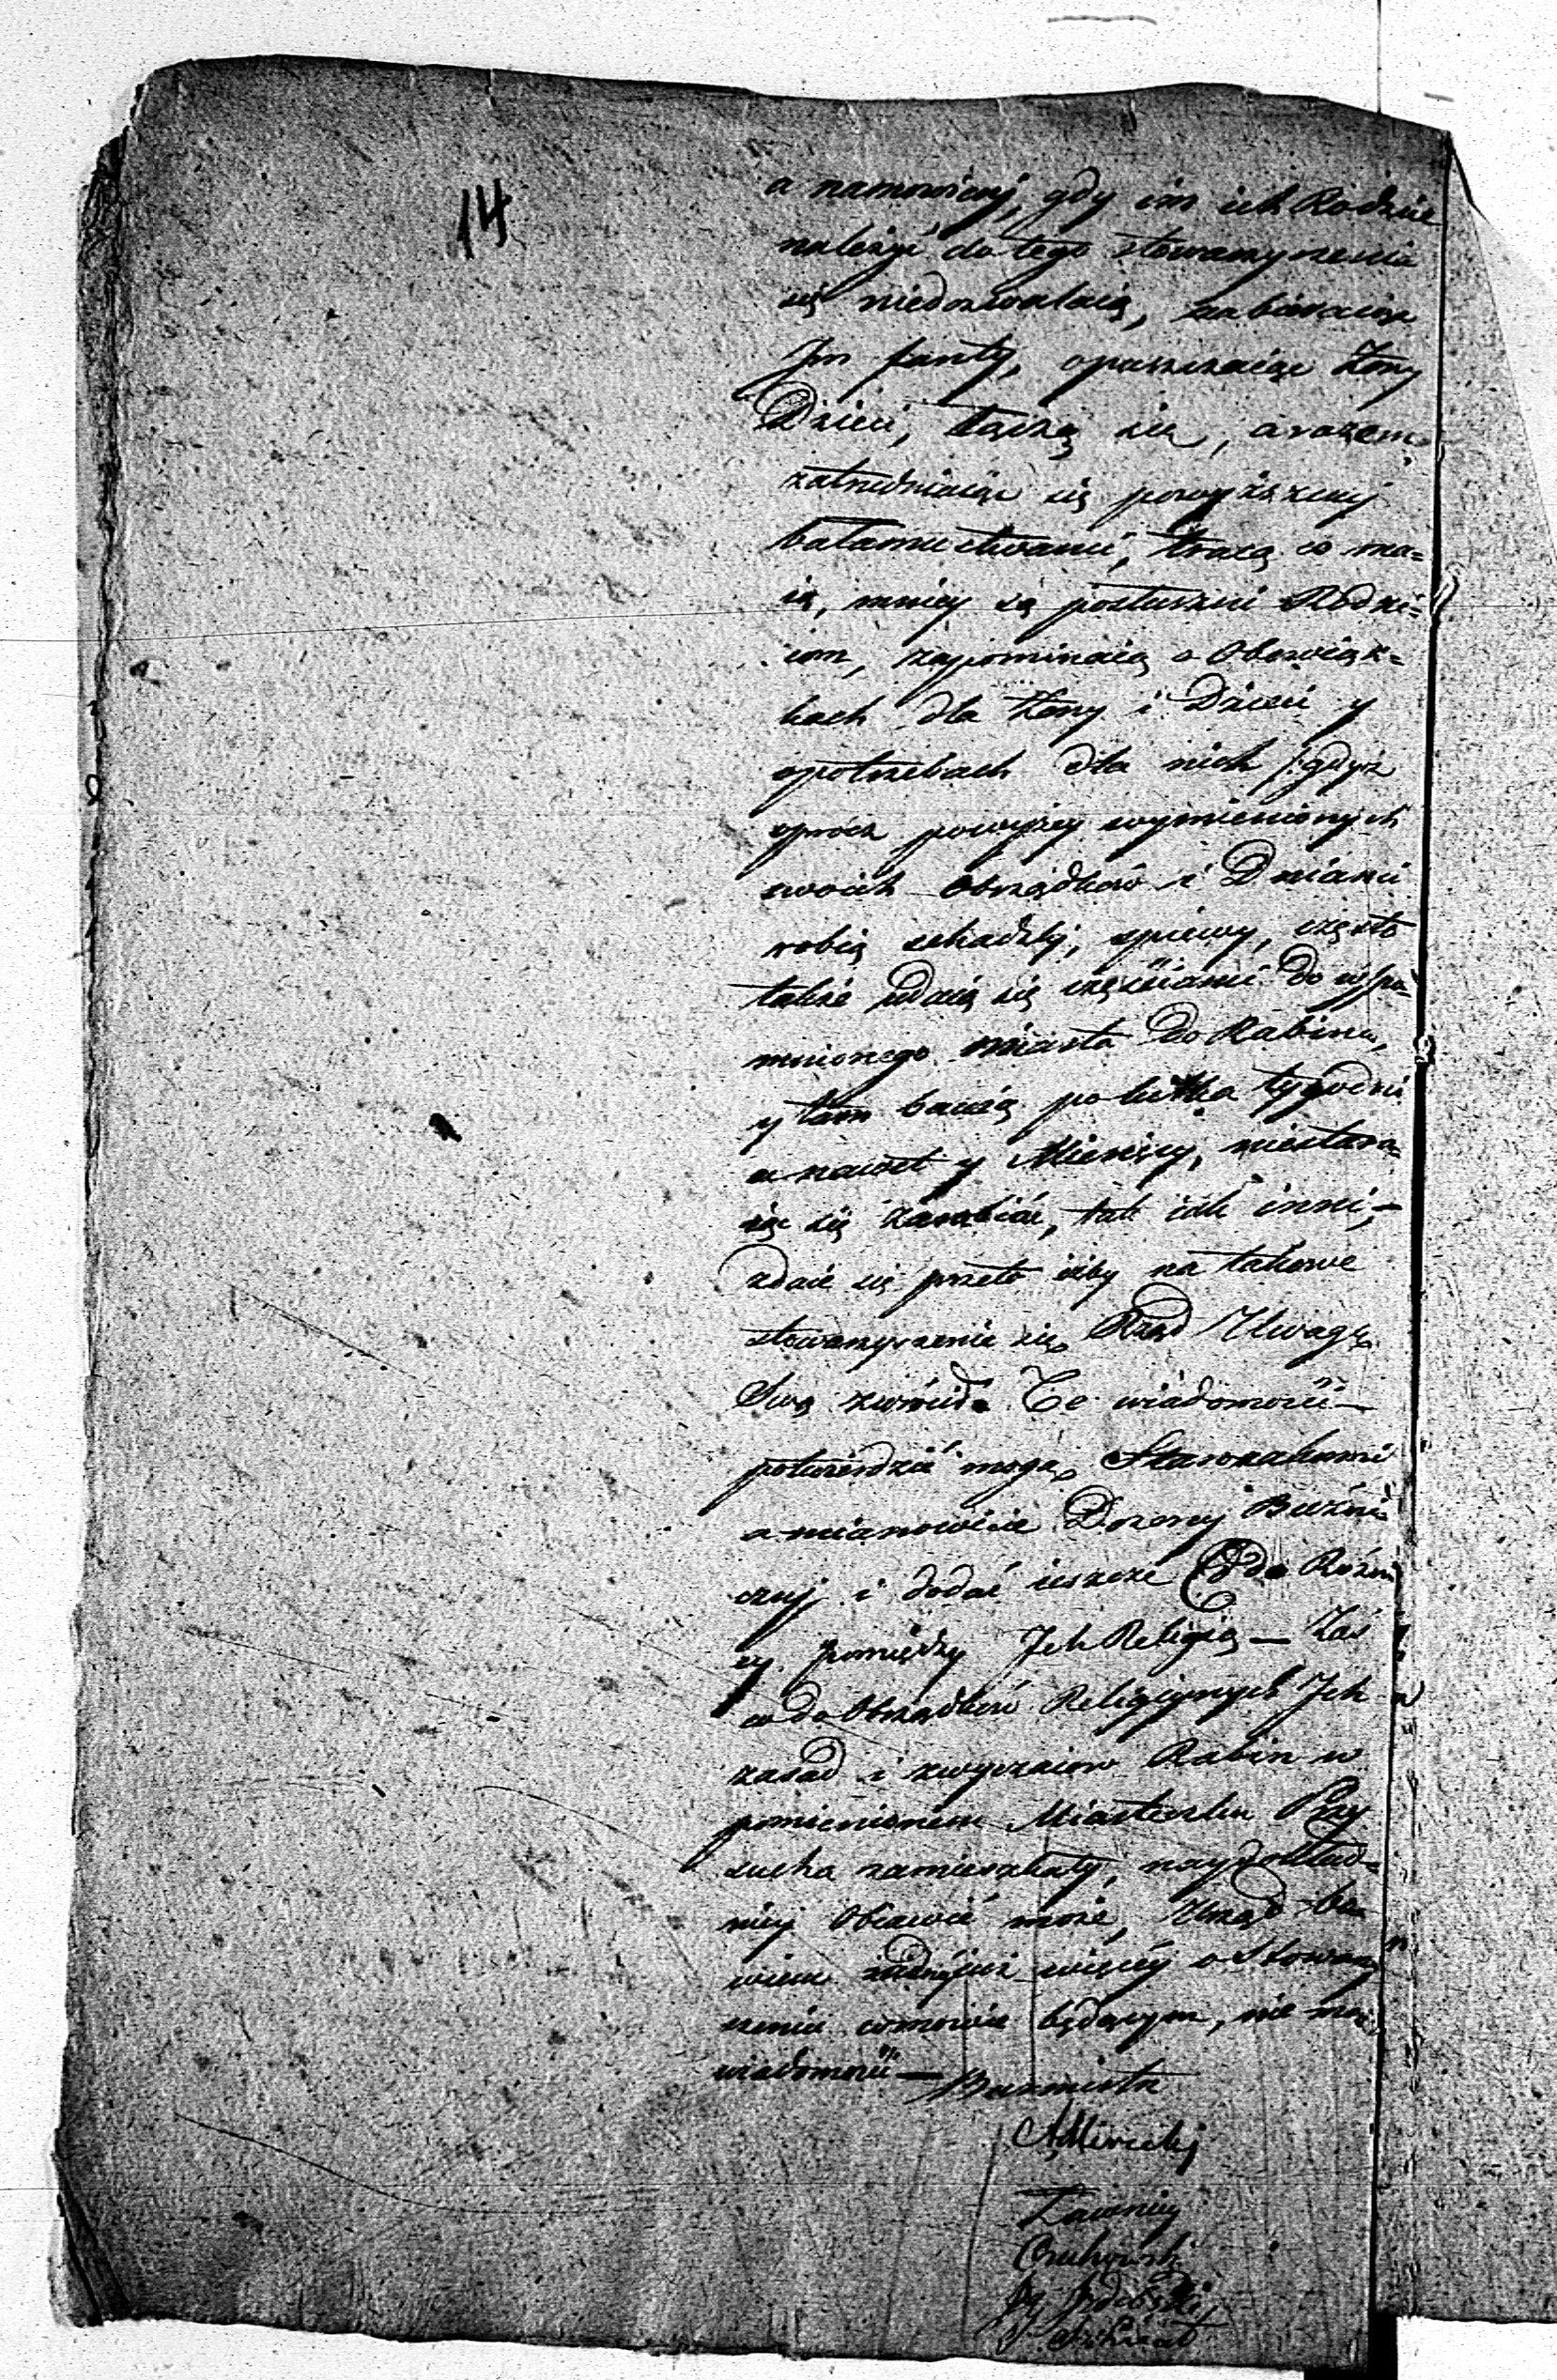 14
a namówieni, gdy im ich Rodzice
należyć do tego stowarzyszenia
się niedozwalaią, zabieraiąc
Jm fanty, opuszczaiąc Żony
Dzieci, łączą się, a razem
zatrudniaiąc się powyższemi
bałamuctwami, tracą co ma=
ią, mniey są posłuszni Rodzi=
com, zapominaią o Obowiąz=
kach dla Żony i Dzieci y
opotrzebach dla nich /: gdyż
oprócz powyżey wymienionych
swoich Obrządków i Dniami
robią schadzki, spiewy, często
także udaią się częściami do wspo=
mnionego miasta do Rabina,
y tam bawią po kilka tygodni
a nawet y Miesięcy, niestara=
iąc się zarabiać, tak iak inni, —
zdaie się przeto iżby na takowe
stowarzyszenie się Rząd Uwagę
Swą zwrócił. Te wiadomości —
potwierdzić mogą Starozakonni
a mianowicie Dozory Bużni=
czey i dodać ieszcze Co do Różni
cy pomiędzy Jch Religią — Zaś
co do Obrządków Religiynych Jch
zasad i zwyczaiow Rabin w
pomienionem Miasteczku Przy
sucha zamieszkały, naydokład=
niey Obiawić może, Urząd bo=
wiem żadnéy iuż więcéy o Stowarzy
szeniu w mowie będącym, nie ma
wiadomości — Burmistrz
Ławnicy